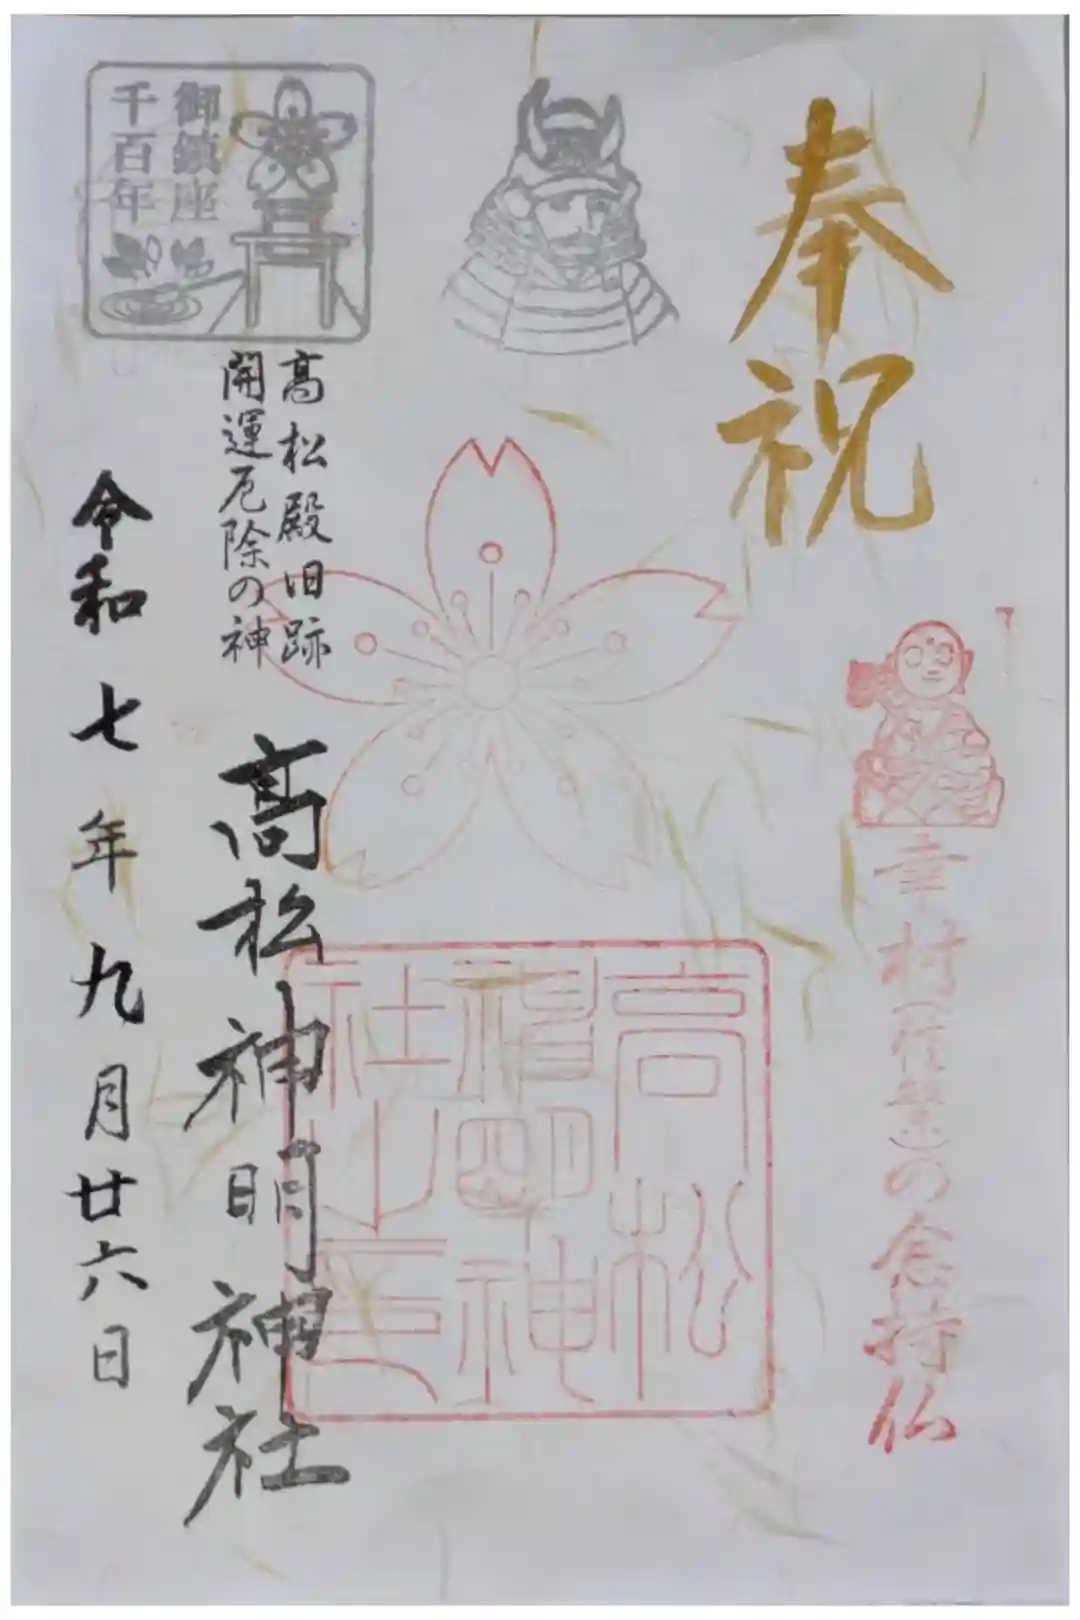 奉祝
幸村(信繁)の念持仏
高松
神明神
社之印
御鎮座
千百年
高松殿旧跡
開運厄除の神
高松神明神社
令和七年九月廿六日